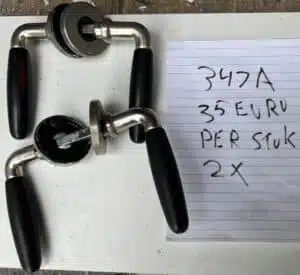 347A
35 EURO
PER STUK
2X